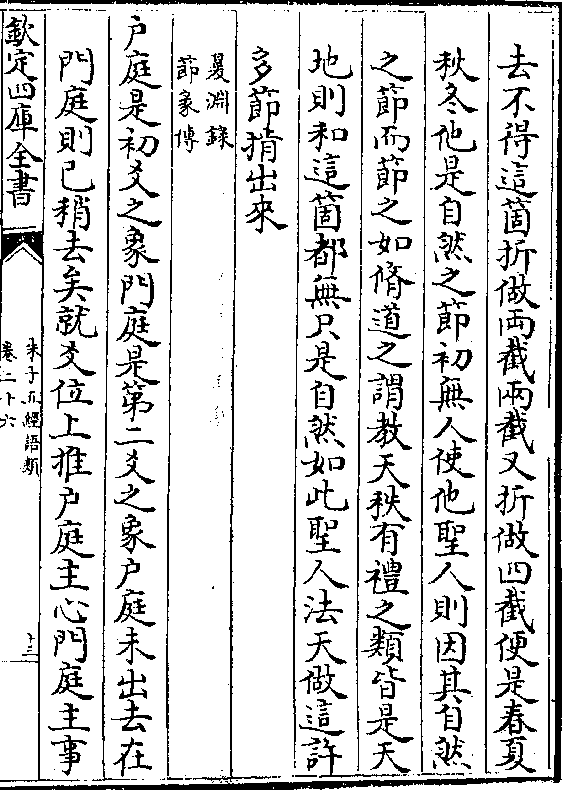 去不得這箇折做兩截兩截又折做四截便是春夏
秋冬他是自然之節初無人使他聖人則因其自然
之節而節之如脩道之謂教天秩有禮之類皆是天
地則和這箇都無只是自然如此聖人法天做這許
多節揹出來
㬊淵錄
節彖傳
户庭是初爻之象門庭是第二爻之象户庭未出去在
門庭則已稍去矣就爻位上推户庭主心門庭主事
欽定四庫全書
朱子五經語類
卷二十六
十三